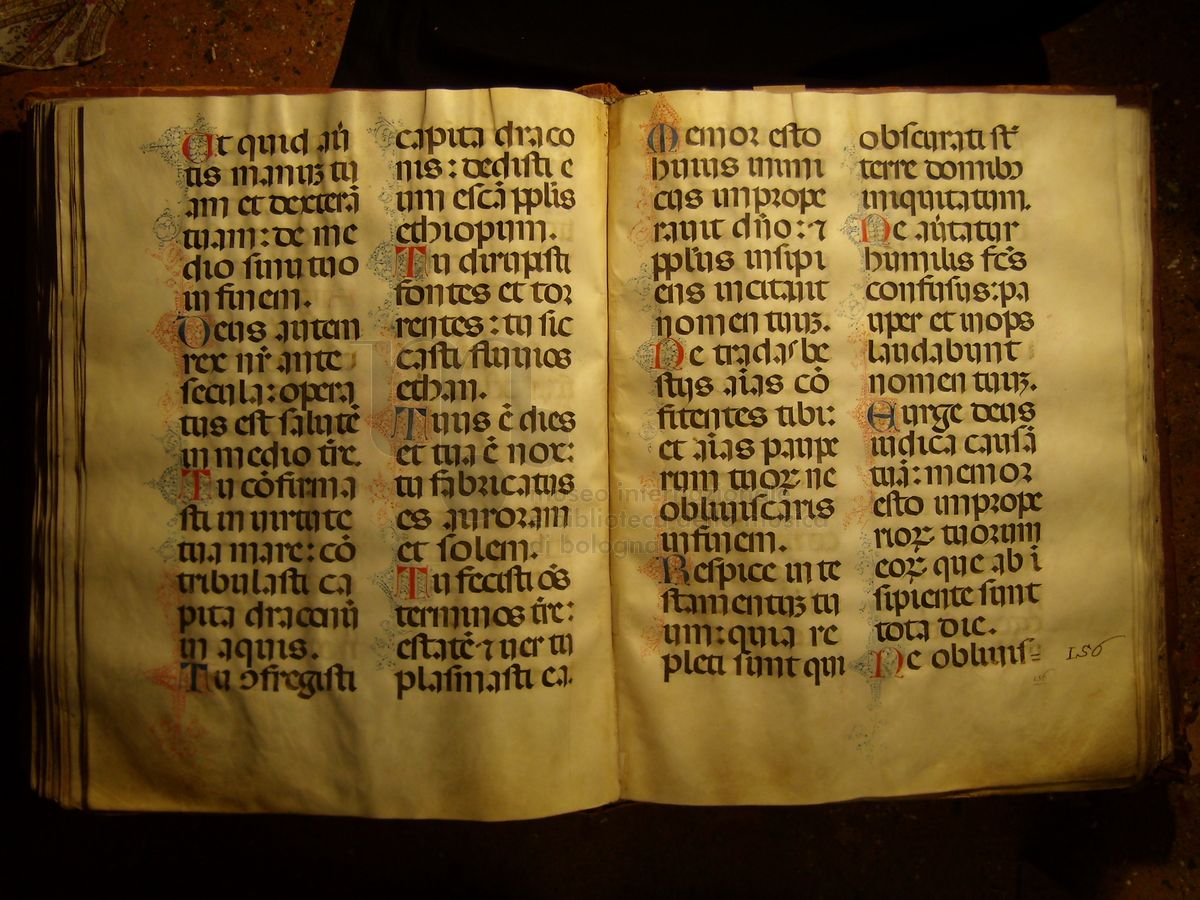 Ut quid aũ
tis manuꝫ tu
am et dexterã
tuam : de me
dio sinu tuo
in finem.
Deus autem
rex nr̃ ante
secula : opera
tus est salutẽ
in medio tr̃e.
Tu cõfirma
sti in uirtute
tua mare : cõ
tribulasti ca
pita draconũ
in aquis.
Tu ɔfregisti
capita draco
nis : dedisti e
um escã pplis
ethiopum.
Tu dirupisti
fontes et tor
rentes : tu sic
casti fluuios
ethan.
Tuus ẽ dies
et tua ẽ nox :
tu fabricatus
es auroram
et solem.
Tu fecisti oẽs
terminos tr̃e :
estatẽ ⁊ uer tu
plasmasti ea.
Memor esto
huius inimi
cus imprope
rauit dño : ⁊
pplus insipi
ens incitauit
nomen tuuꝫ.
Ne tradas be
stijs aĩas cõ
fitentes tibi :
et aĩas paupe
rum tuoꝝ ne
obliuiscaris
in finem.
Respice in te
stamentuꝫ tu
um : quia re
pleti sunt qui
obscurati st̃
terre domibꝫ
iniquitatum.
Ne aũtatur
humilis fcũs
confusus : pa
uper et inops
laudabunt
nomen tuuꝫ.
Exurge deus
iudica causã
tuã : memor
esto imprope
rioꝝ tuorum
eoꝝ que ab ĩ
sipiente sunt
tota die.
Ne obliuis=
156
156
museo internazionale
e biblioteca della musica
di bologna